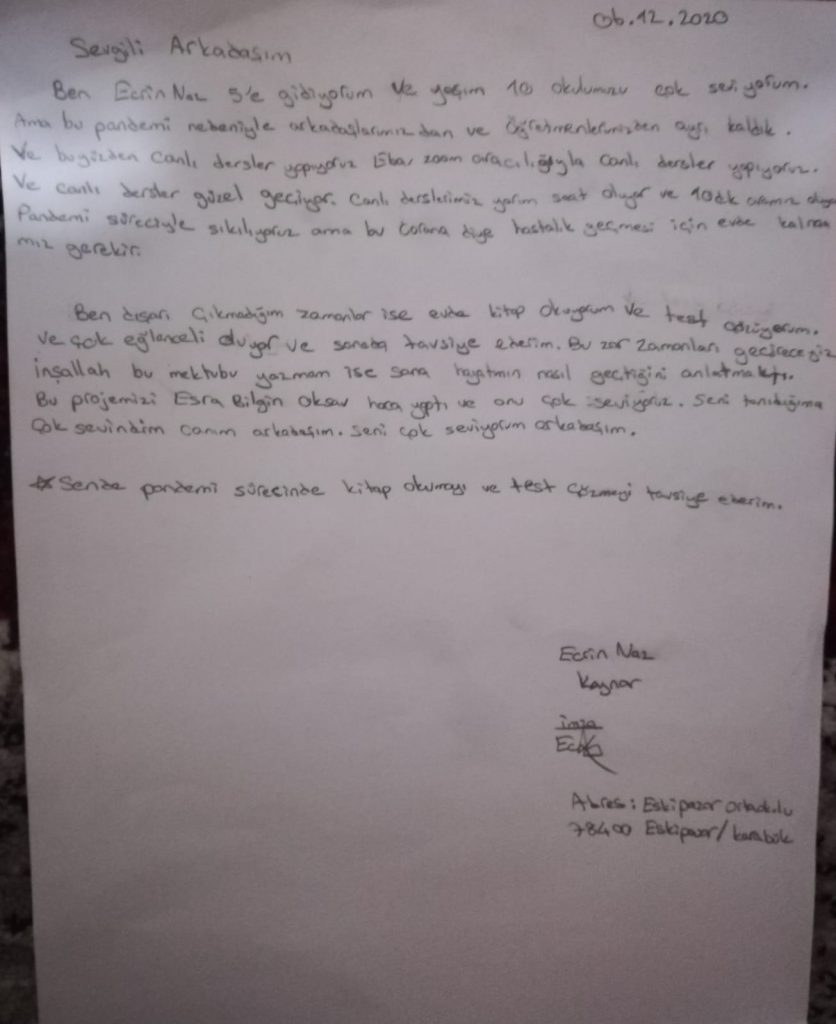 06.12.2020
Sevgili Arkadaşım
Ben Ecrin Naz 5'e gidiyorum ve yaşım 10 okulumuzu çok seviyorum.
Ama bu pandemi nedeniyle arkadaşlarımızdan ve öğretmenlerimizden ayrı kaldık.
Ve bu yüzden Canlı dersler yapıyoruz Eba, zoom aracılığıyla Canlı dersler yapıyoruz.
Ve canlı dersler güzel geçiyor. Canlı derslerimiz yarım saat oluyor ve 10dk aramız oluyo
Pandemi süreciyle sıkılıyoruz ama bu Corona diye hastalık geçmesi için evde kalma
mız gerekir.
Ben dışarı Çıkmadığım zamanlar ise evde kitap okuyorum ve test çözüyorum.
Ve çok eğlenceli oluyor ve sanada tavsiye ederim. Bu zor zamanları geçireceğiz
inşallah bu mektubu yazmam ise sana hayatımın nasıl geçtiğini anlatmaktı.
Bu projemizi Esra Bilgin Oksav hoca yaptı ve onu çok seviyoruz. Seni tanıdığıma
Çok sevindim canım arkadaşım. Seni çok seviyorum arkadaşım.
* Sende pandemi sürecinde kitap okumayı ve test çözmeyi tavsiye ederim.
Ecrin Naz
Kaynar
imza
Adres: Eskipazar ortaokulu
78400 Eskipazar/karabük